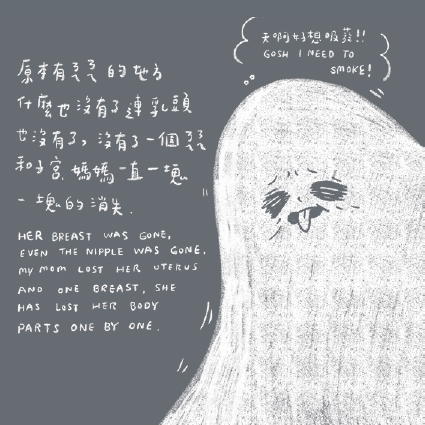 天啊好想吸菸!!
GOSH I NEED TO
SMOKE!
原本有ㄋㄋ的地方
什麼也沒有了連乳頭
也沒有了,沒有了一個ㄋㄋ
和子宮.媽媽一直一塊
一塊的消失.
HER BREAST WAS GONE,
EVEN THE NIPPLE WAS GONE.
MY MOM LOST HER UTERUS
AND ONE BREAST, SHE
HAS LOST HER BODY
PARTS ONE BY ONE.